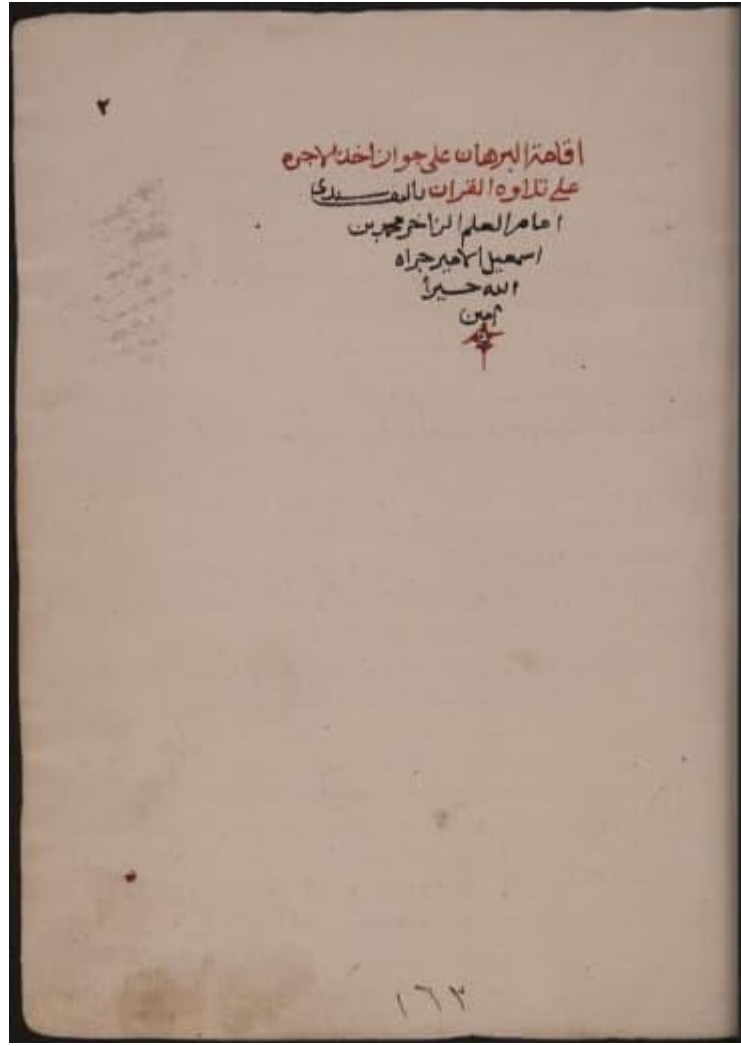 ٢
اقامة البرهان على جواز اخذ الاجره
على تلاوه القران تاليف سيدي
امام العلم الزاخر محمد بن
اسمعيل الامير جزاه
الله خيرا
امين
١٦٣